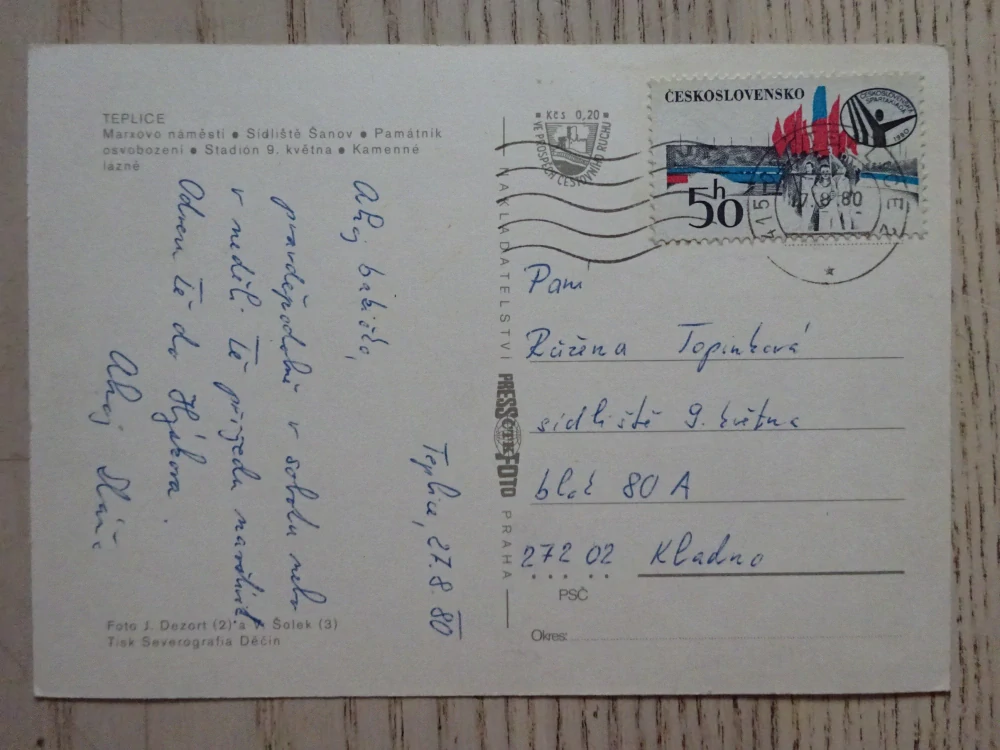 TEPLICE
Marxovo náměstí • Sídliště Šanov • Památník
osvobození • Stadión 9. května • Kamenné
lázně
Teplice, 27.8.80
Ahoj babičko,
pravděpodobně v sobotu nebo
v neděli tě přijedu navštívit
Odvezu tě do Hýskova.
Ahoj
Foto J. Dezort (2) a Šolek (3)
Tisk Severografia Děčín
Kčs 0,20
VE PROSPĚCH CESTOVNÍHO RUCHU
NAKLADATELSTVÍ PRESSFOTO PRAHA
ČTK
ČESKOSLOVENSKO
ČESKOSLOVENSKÁ SPARTAKIÁDA 1980
50h
415
8 80
Paní
Růžena Topinková
sídliště 9. května
blok 80 A
272 02 Kladno
PSČ
Okres: